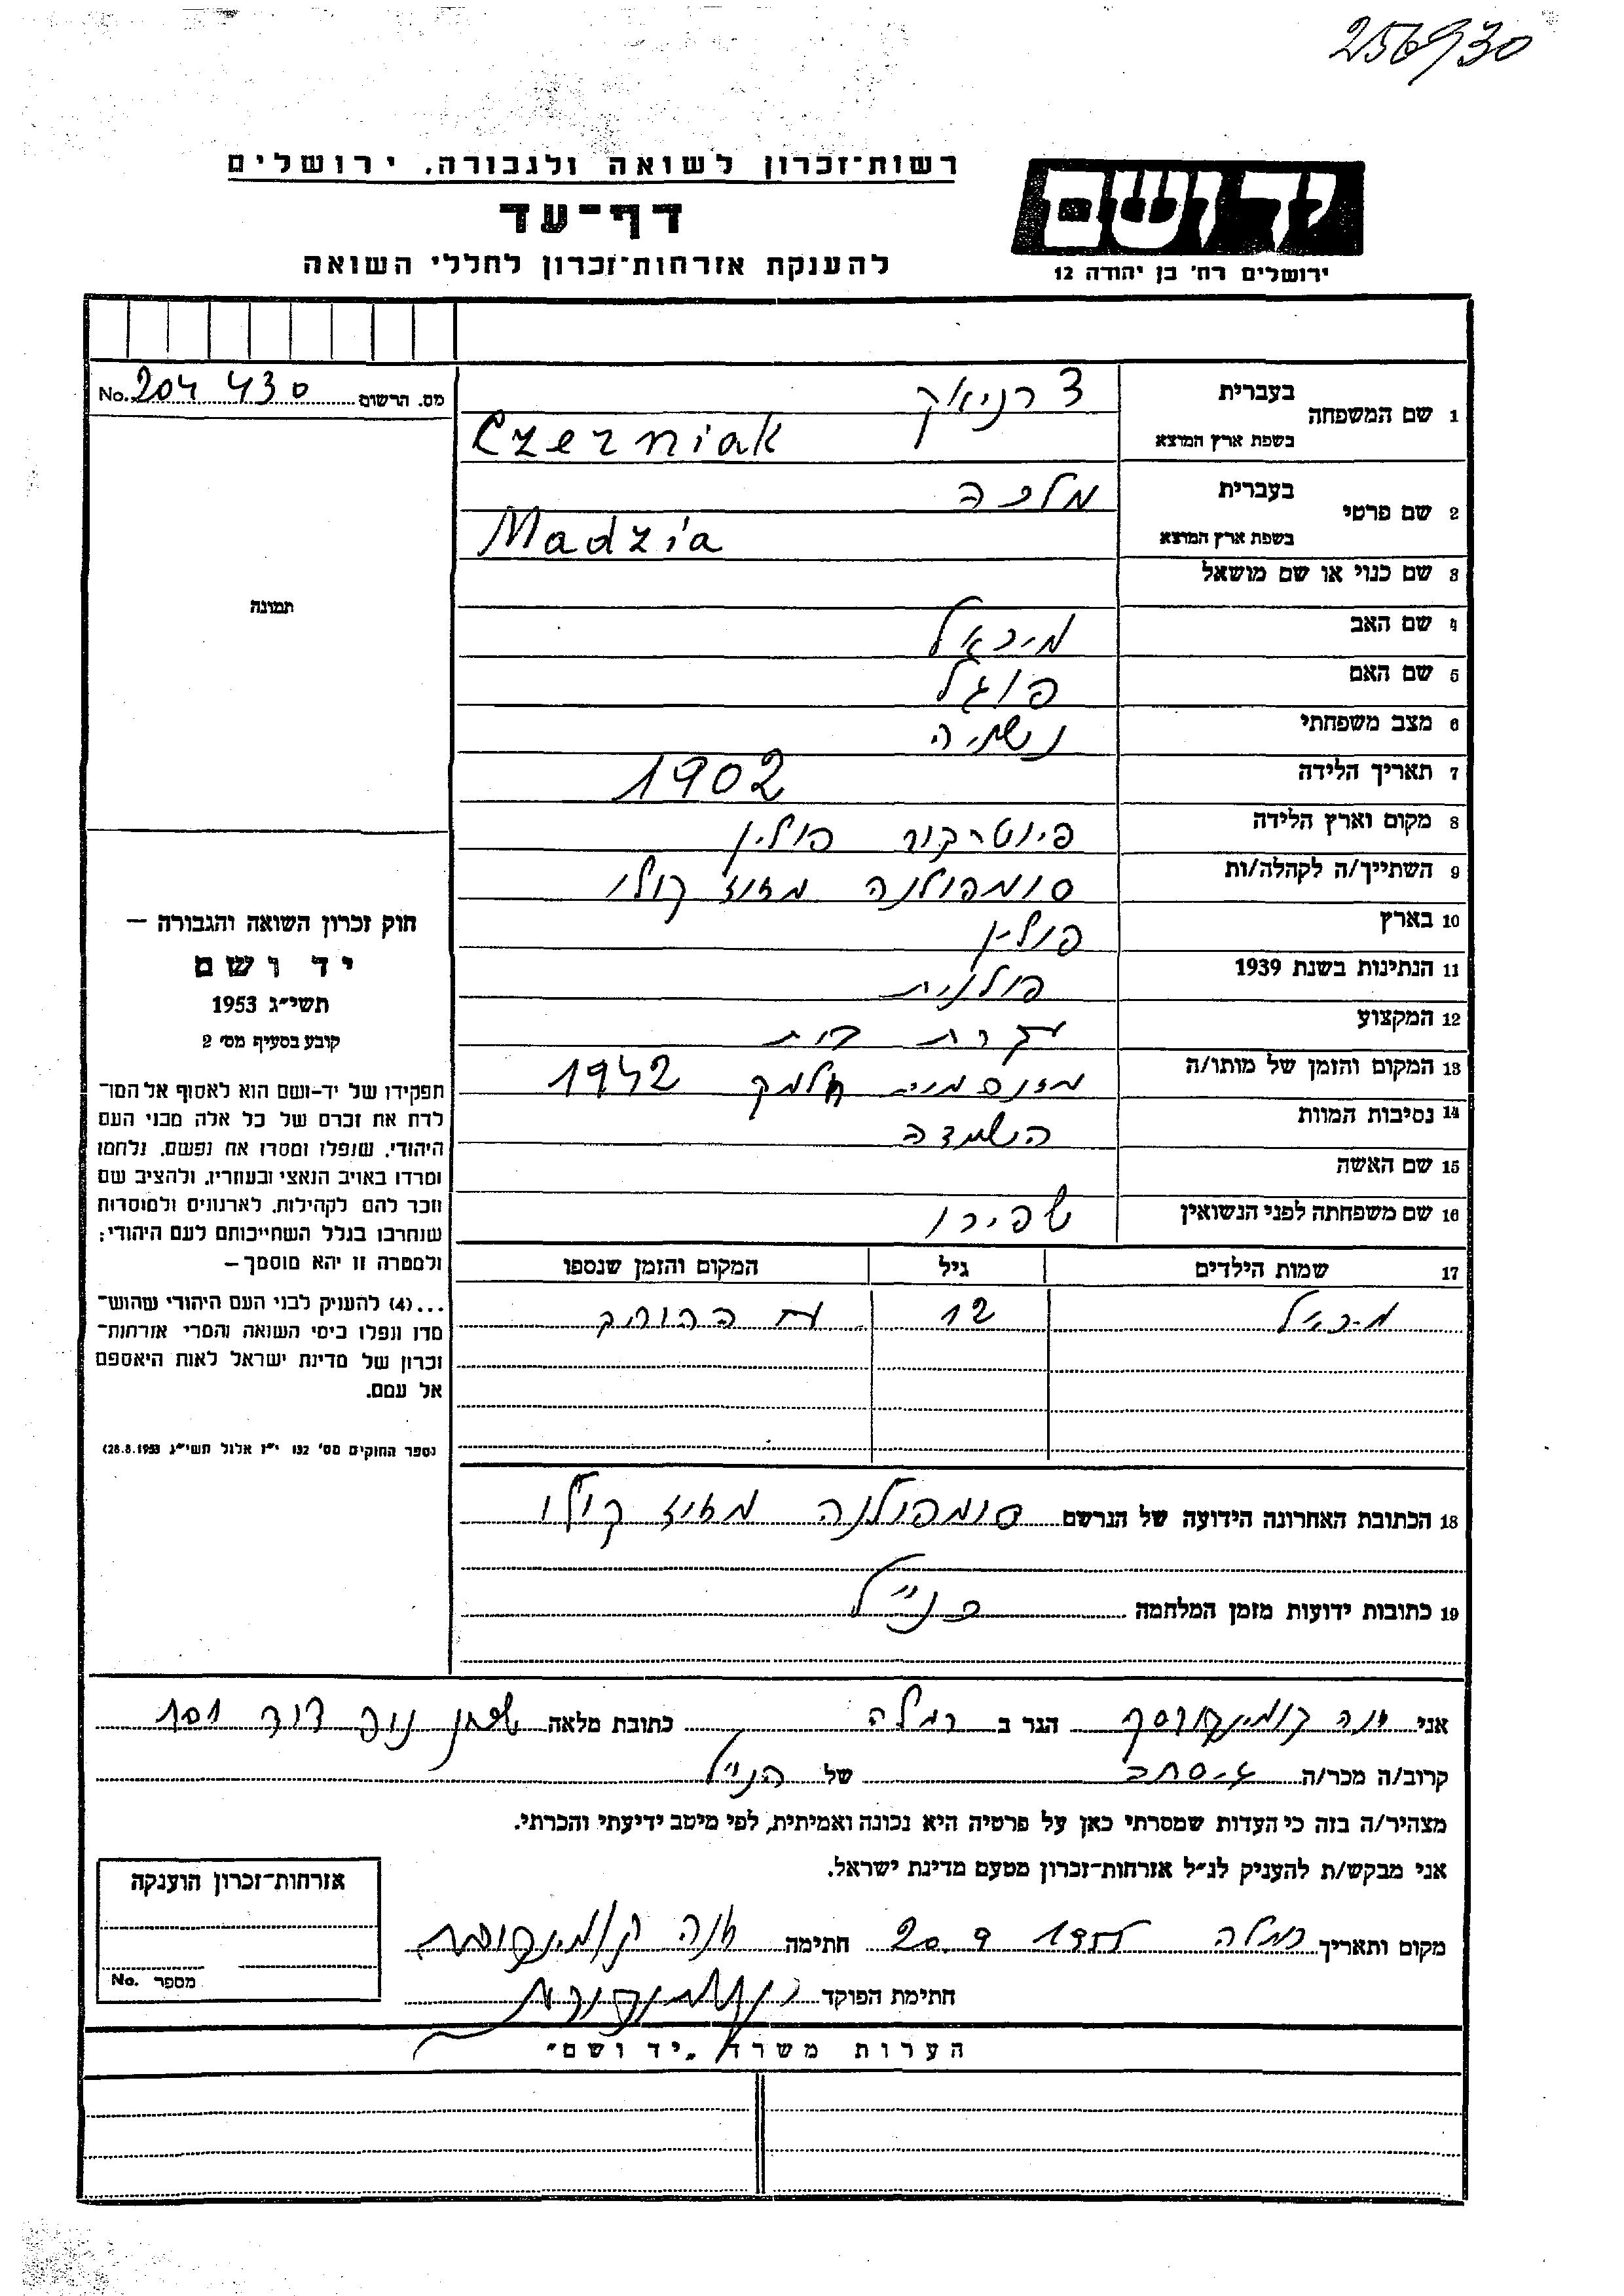 256930
יד ושם
ירושלים רח' בן יהודה 12
רשות־זכרון לשואה ולגבורה, ירושלים
דף־עד
להענקת אזרחות־זכרון לחללי השואה
מס. הרשום 204 430 No.
תמונה
1 שם המשפחה
בעברית
צרניאק
בשפת ארץ המוצא
Czerniak
2 שם פרטי
בעברית
מלכה
בשפת ארץ המוצא
Madzia
3 שם כנוי או שם מושאל
4 שם האב מיכאל
5 שם האם פוגל
6 מצב משפחתי נשויה
7 תאריך הלידה 1902
8 מקום וארץ הלידה פיוטרקוב פולין
9 השתייך/ה לקהלה/ות סומפולנה מחוז קולו
10 בארץ פולין
11 הנתינות בשנת 1939 פולנית
12 המקצוע עקרת בית
13 המקום והזמן של מותו/ה חלמנו 1942
14 נסיבות המוות הושמדה
15 שם האשה
16 שם משפחתה לפני הנשואין שפירו
17 שמות הילדים גיל המקום והזמן שנספו
מיכאל 12
18 הכתובת האחרונה הידועה של הנרשם סומפולנה מחוז קולו
19 כתובות ידועות מזמן המלחמה כנ״ל
חוק זכרון השואה והגבורה –
יד ושם
תשי״ג 1953
קובע בסעיף מס׳ 2
תפקידו של יד-ושם הוא לאסוף אל המו־
לדת את זכרם של כל אלה מבני העם
היהודי, שנפלו ומסרו את נפשם, נלחמו
ומרדו באויב הנאצי ובעוזריו, ולהציב שם
וזכר להם לקהילות, לארגונים ולמוסדות
שנחרבו בגלל השתייכותם לעם היהודי;
ולמטרה זו יהא מוסמך –
...(4) להעניק לבני העם היהודי שהוש־
מדו ונפלו בימי השואה והמרי אזרחות־
זכרון של מדינת ישראל לאות היאספם
אל עמם.
(ספר החוקים מס׳ 132 י״ז אלול תשי״ג 28.8.1953)
אני הגר ב רמלה כתובת מלאה שכון נוה דוד 101
קרוב/ה מכר/ה גיסתה של הנ״ל
מצהיר/ה בזה כי העדות שמסרתי כאן על פרטיה היא נכונה ואמיתית, לפי מיטב ידיעתי והכרתי.
אני מבקש/ת להעניק לנ״ל אזרחות־זכרון מטעם מדינת ישראל.
מקום ותאריך רמלה חתימה
חתימת הפוקד
אזרחות־זכרון הוענקה
מספר No.
הערות משרד „יד ושם״